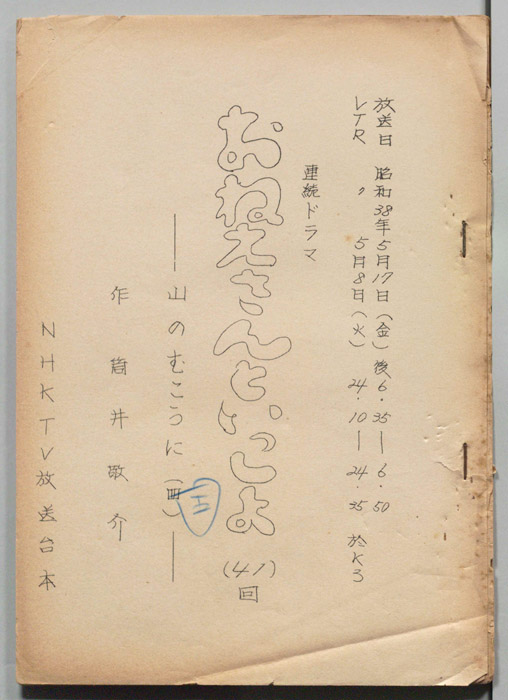 放送日 昭和38年5月17日(金)後6.35—6.50
VTR 〃 5月8日(火)24.10—24.25 於K3
連続ドラマ
おねえさんといっしょ(41)回
——山のむこうに(四)——
五
作 筒井敬介
NHKTV放送台本